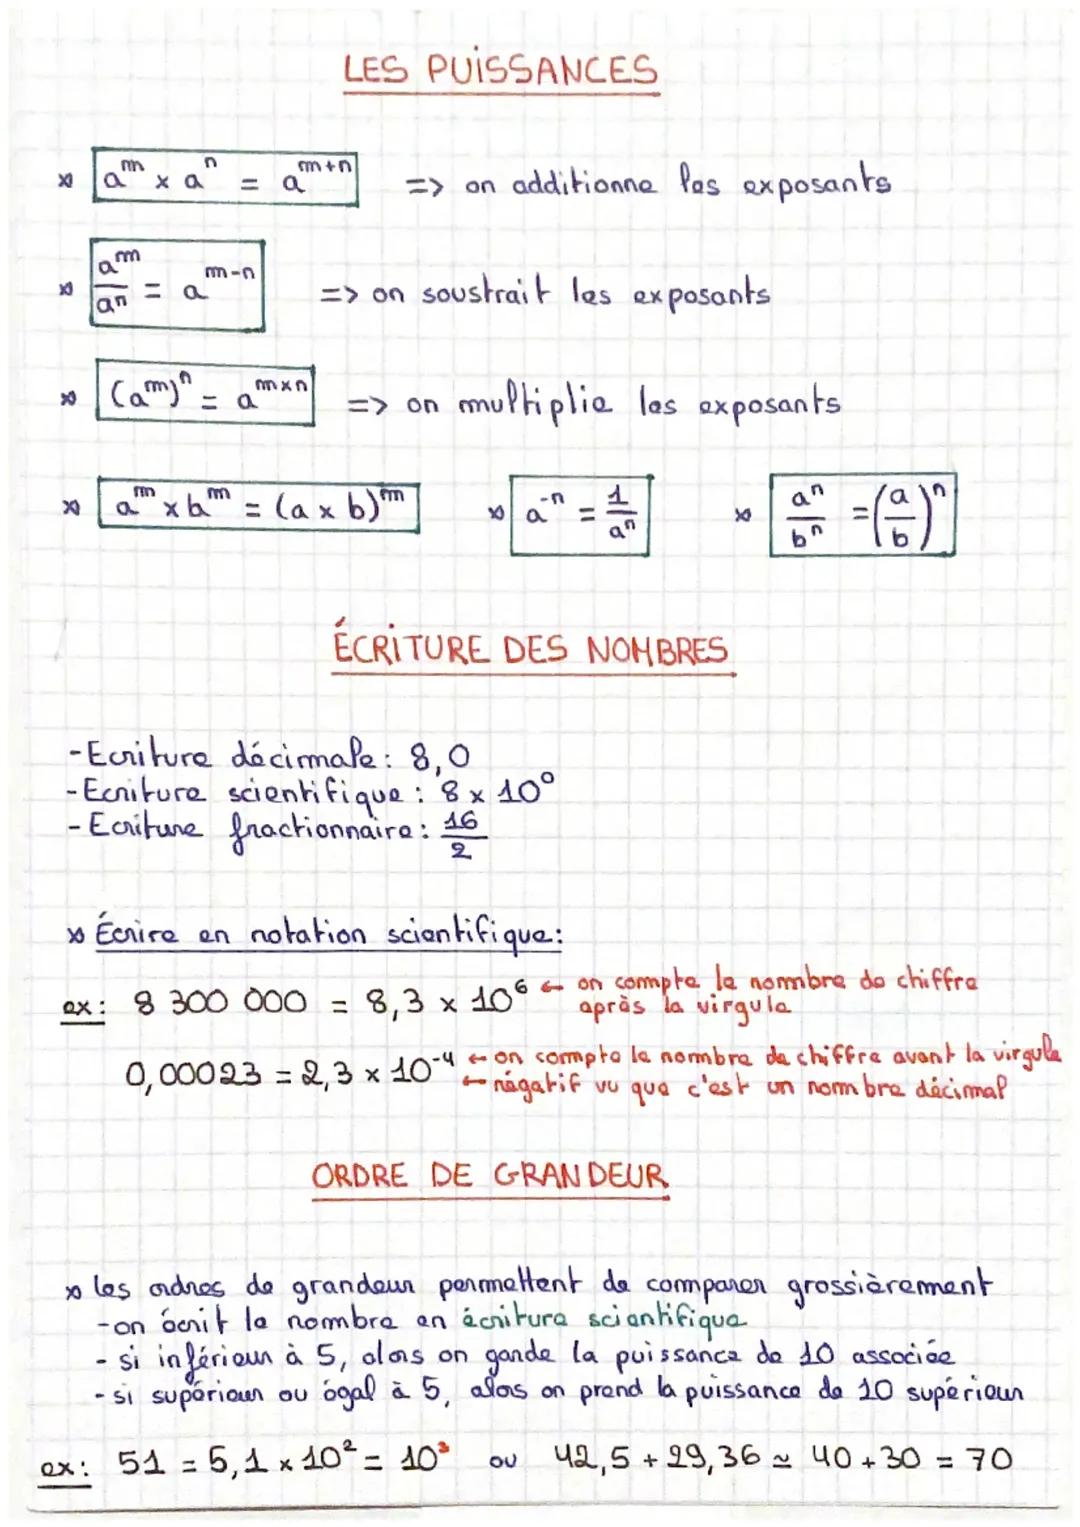 LES PUISSANCES
a^m × a^n = a^(m+n) => on additionne les exposants
a^m/a^n = a^(m-n) => on soustrait les exposants
(a^m)^n = a^(m×n) => on multiplie les exposants
a^m × b^m = (a × b)^m a^-n = 1/a^n a^n/b^n = (a/b)^n
ÉCRITURE DES NOMBRES
-Ecriture décimale : 8,0
-Ecriture scientifique : 8 × 10⁰
-Ecriture fractionnaire : 16/2
Écrire en notation scientifique :
ex : 8 300 000 = 8,3 × 10⁶ ← on compte le nombre de chiffre
après la virgule
0,00023 = 2,3 × 10⁻⁴ ← on compte le nombre de chiffre avant la virgule
← négatif vu que c'est un nombre décimal
ORDRE DE GRANDEUR
les ordres de grandeur permettent de comparer grossièrement
-on écrit le nombre en écriture scientifique
- si inférieur à 5, alors on garde la puissance de 10 associée
-si supérieur ou égal à 5, alors on prend la puissance de 10 supérieur
ex : 51 = 5,1 × 10² = 10³ ou 42,5 + 29,36 ≃ 40 + 30 = 70